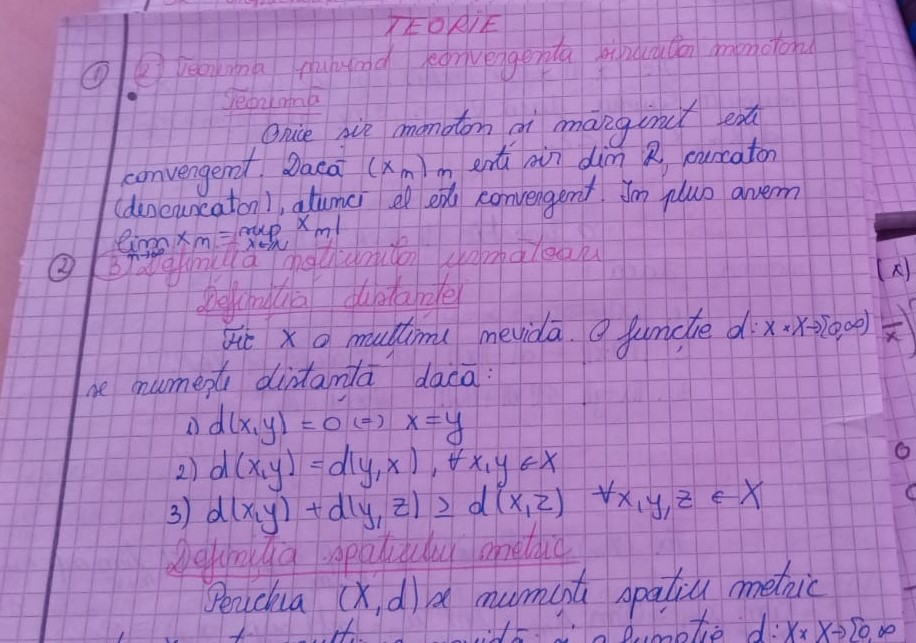 TEORIE
① 2) Teorema privind convergenta sirurilor monotone
Teoremă
Orice sir monoton si mărginit este
convergent. Dacă (xn)n este sir din R, crescator
(descrescator), atunci el este convergent. In plus avem
lim xn = sup xn
n→∞
② 3) Definitia notiunilor urmatoare
Definitia distantei
Fie X o multime nevidă. O funcție d: X×X→[0,∞)
se numeste distantă dacă:
1) d(x,y) = 0 (=) x=y
2) d(x,y) = d(y,x), ∀ x,y ∈ X
3) d(x,y) + d(y,z) ≥ d(x,z) ∀x,y,z ∈ X
Definitia spatiului metric
Perechea (X,d) se numeste spatiu metric
nevidă si o functie d: X×X→[0,∞
(x)
x